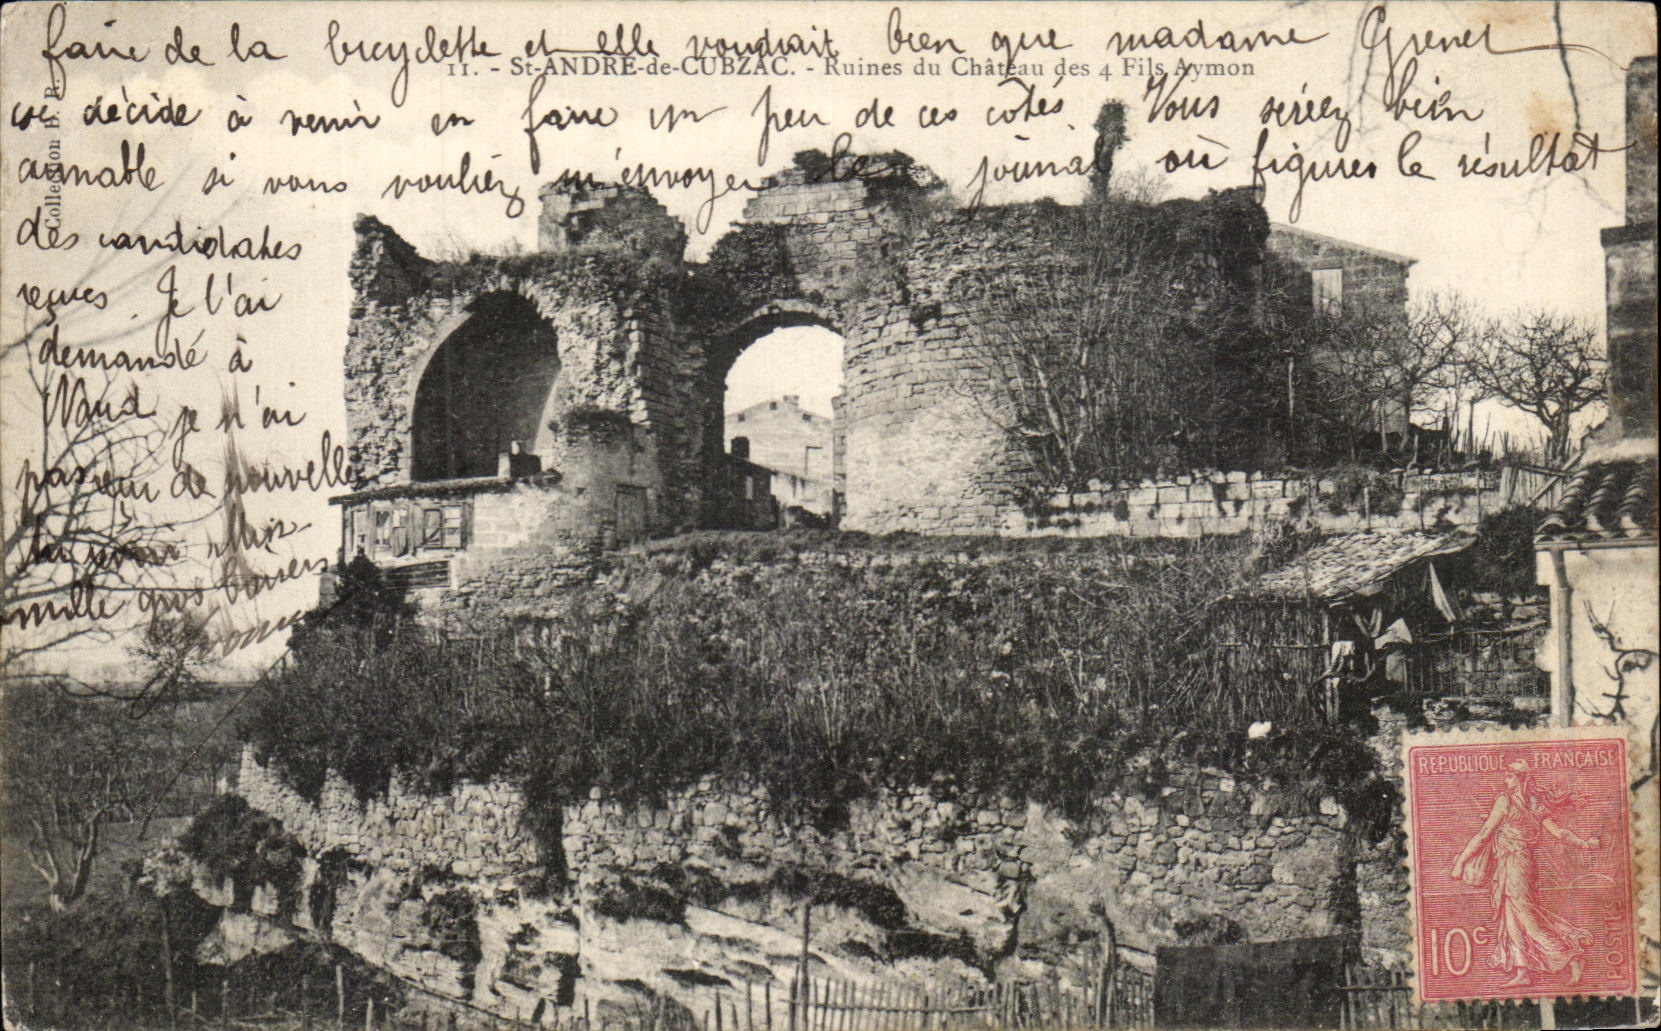 faire de la bicyclette et elle voudrait bien que madame Grenet
11. - St-ANDRÉ-de-CUBZAC. - Ruines du Château des 4 Fils Aymon
se décide à venir en faire un peu de ces côtés. Vous seriez bien
aimable si vous vouliez m'envoyer le journal où figurer le résultat
des candidates
reçues. Je l'ai
demandé à
je n'ai
pas eu de nouvelle
mille gros baisers
Collection B. R.
RÉPUBLIQUE FRANÇAISE
10c
POSTES